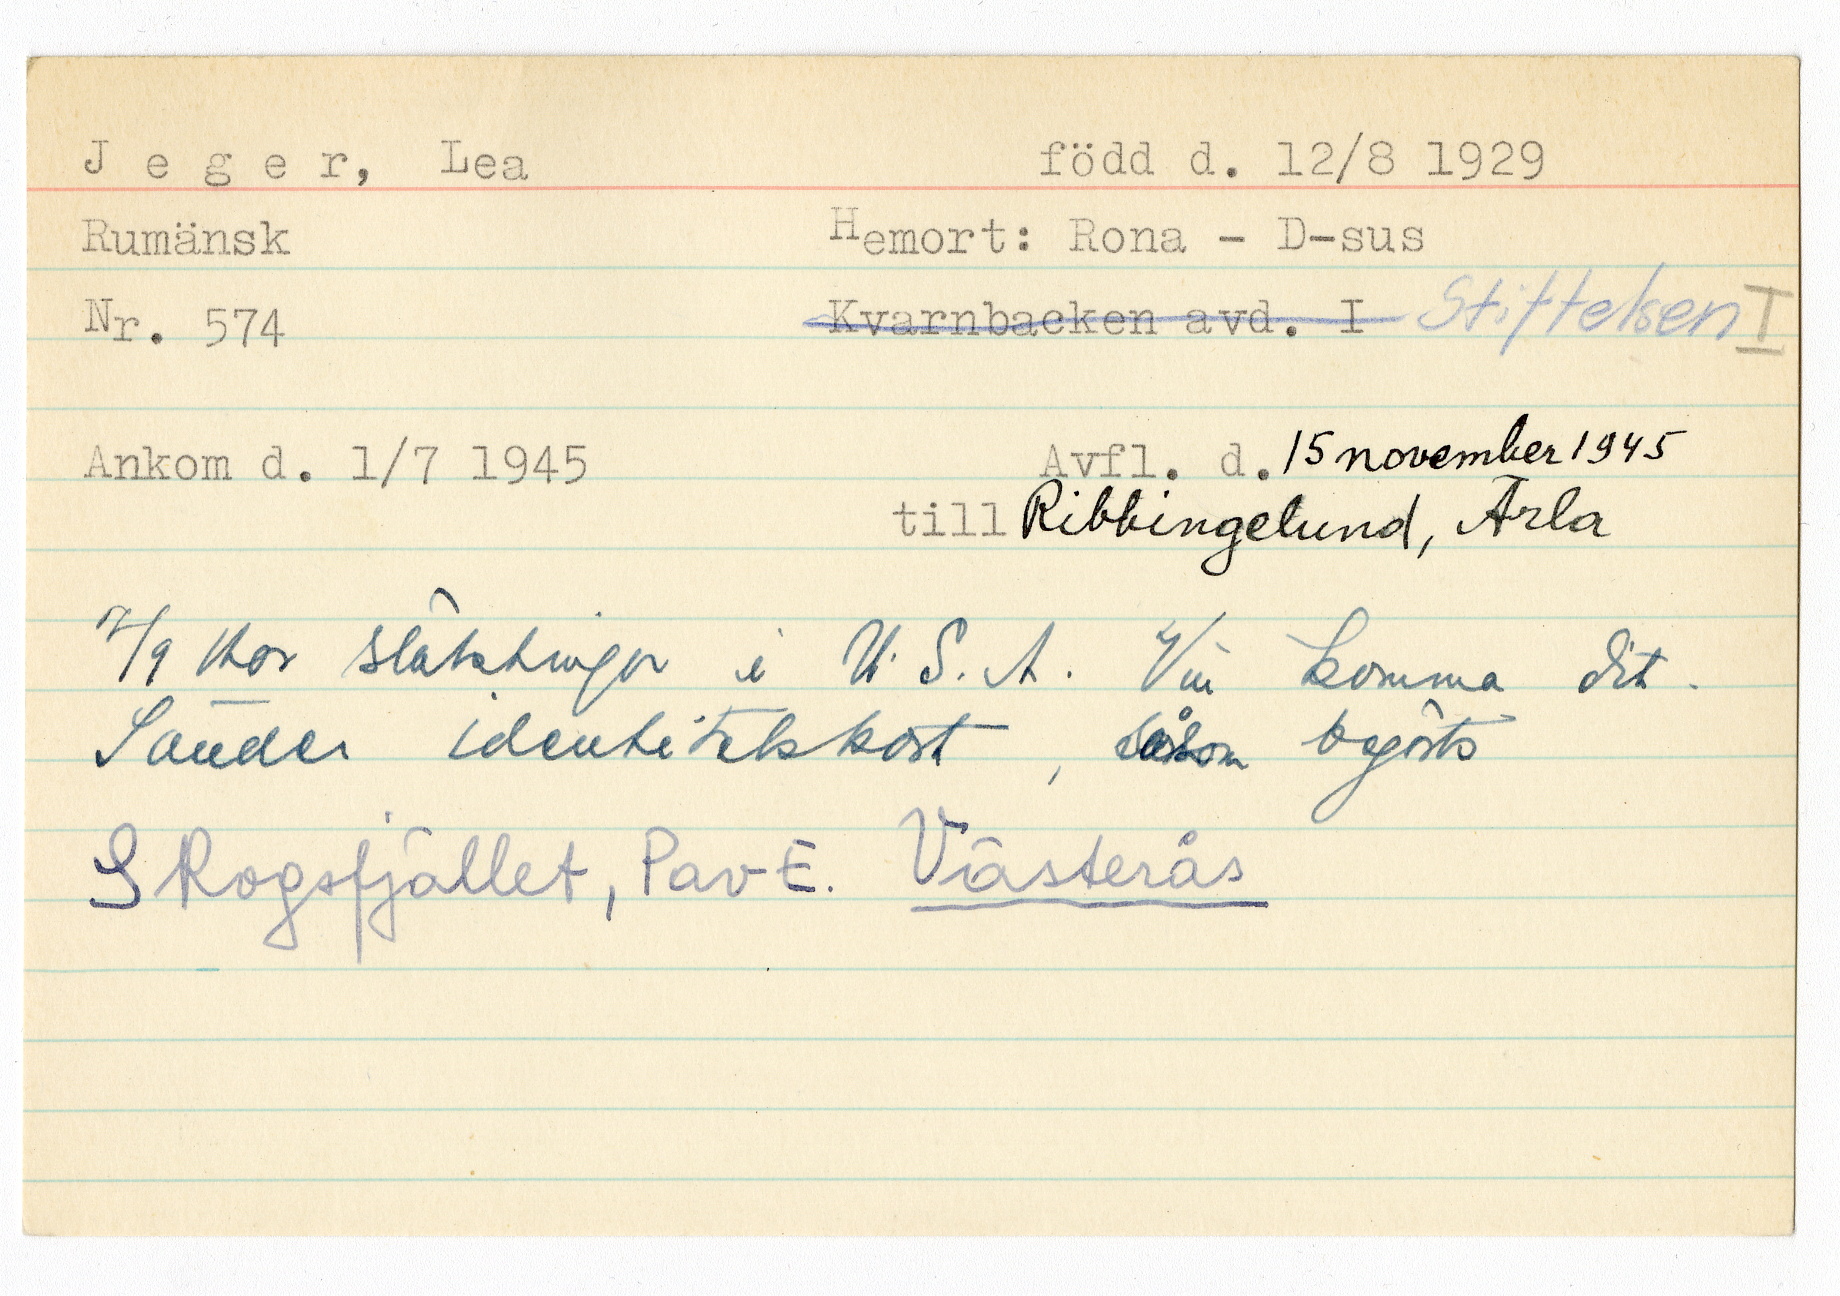 Jeger, Lea född d. 12/8 1929
Rumänsk Hemort: Rona - D-sus
Nr. 574 Kvarnbacken avd. I Stiftelsen I
Ankom d. 1/7 1945 Avfl. d. 15 november 1945
till Ribbingelund, Ärla
7/9 Har släktingar i U.S.A. Vill komma dit.
Sänder identitetskort, såsom begärts
Skogsfjället, Pav E. Västerås